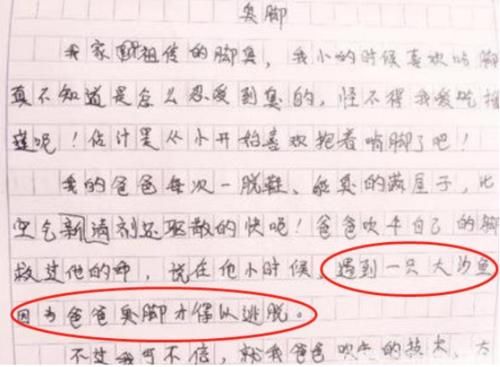 臭脚
我家祖传的脚臭，我小的时候喜欢啃脚
真不知道是怎么忍受到臭的，怪不得我爱吃
呢！估计是从小开始喜欢抱着啃脚了吧！
我的爸爸每次一脱鞋，能臭的满屋子，比
空气新清剂还驱散的快呢！爸爸吹牛自己的脚
救过他的命，说在他小时候，遇到一只大沙鱼
因为爸爸臭脚才得以逃脱。
不过我可不信，就我爸爸吹牛的技术，